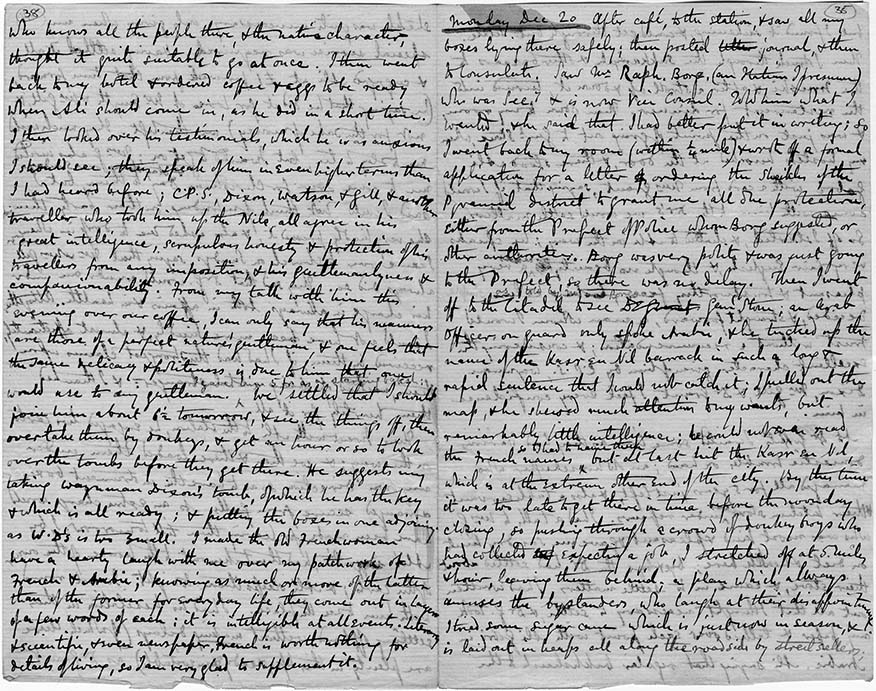 38
who knows all the people there, & the native character,
thought it quite suitable to go at once. I then went
back to my hotel & ordered coffee & eggs to be ready
when Ali should come in, as he did in a short time.
I then looked over his testimonials, which he was anxious
I should see; they speak of him in even higher terms than
I had heard before; C.P.S., Dixon, Watson & Gill, & another
traveller who took him up the Nile, all agree in his
great intelligence, scrupulous honesty & protection of his
travellers from any imposition, & his gentlemanlyness &
companionability. From my talk with him this
evening over our coffee, I can only say that his manners
are those of a perfect natural gentleman, & one feels that
the same delicacy & politeness is due to him that one
would use to any gentleman. We settled that I should
join him about tomorrow, & see the things off, then
overtake them by donkeys, & get an hour or so to look
over the tombs before they get there. He suggests my
taking Waynman Dixon's tomb, of which he has the key
& which is all ready; & putting the boxes in one adjoining
as W.D's is too small. I made the old Frenchwoman
have a hearty laugh with me over my patchwork of
French & Arabic; knowing as much or more of the latter
than of the former for everyday life, they come out in layers
of a few words of each; it is intelligible at all events. Literary
& scientific, & even newspaper, French is worth nothing for
details of living, so I am very glad to supplement it.
Monday Dec 20 After café, to the station, & saw all my
boxes lying there safely; then posted letter journal, & then
to Consulate. Saw Mr Raph. Borg, (an Italian I presume)
who was Sec? & is now Vice Consul. Told him what I
wanted, & he said that I had better put it in writing; so
I went back to my room (within ¼ mile) & wrote a formal
application for a letter ordering the Sheikhs of the
Pyramid district to grant me all due protection,
either from the Prefect of Police whom Borg suggested, or
other authorities. Borg was very polite & was just going
to the Prefect, so there was no delay. Then I went
off to the Citadel to see Genl Stone; an Arab
officer on guard only spoke Arabic, & he tucked up the
name of the Kasr en Nil barrack in such a long &
rapid sentence that I could not catch it; I pulled out the
map, & he shewed much attention to my wants, but
remarkably little intelligence; he could not even read
the French names so I had to name them, but at last hit the Kasr en Nil,
which is at the extreme other end of the city. By this time
it was too late to get there in time before the noonday
closing, so pushing through a crowd of donkey boys who
had collected expecting a job, I stretched off at 5 miles
& hour leaving them behind; a plan which always
amuses the bystanders, who laugh at their disappointment
I tried some sugar cane which is just now in season, &
is laid out in heaps all along the roadside by street sellers.